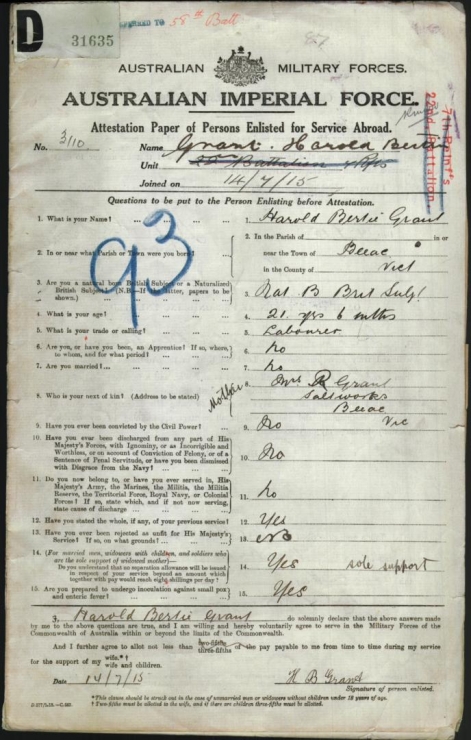 D 31635
58th Batt
AUSTRALIAN MILITARY FORCES.
AUSTRALIAN IMPERIAL FORCE.
Attestation Paper of Persons Enlisted for Service Abroad.
No. 3/10 Name Grant. Harold Bertie
Unit 22 Battalion
Joined on 14/7/15
7th Reint's
22nd Battalion.
Questions to be put to the Person Enlisting before Attestation.
1. What is your Name? ... 1. Harold Bertie Grant
2. In or near what Parish or Town were you born? ... 2. In the Parish of in or
near the Town of Beeac
in the County of Vict
3. Are you a natural born British Subject or a Naturalized
British Subject? (N.B.—If the latter, papers to be
shown.) 3. Nat B Brit Subj
4. What is your age? ... 4. 21 yrs 6 mths
5. What is your trade or calling? ... 5. Labourer
6. Are you, or have you been, an Apprentice? If so, where,
to whom, and for what period? 6. No
7. Are you married? ... 7. No
8. Who is your next of kin? (Address to be stated) Mother 8. Mrs R Grant
Saltworks
Beeac
Vic
9. Have you ever been convicted by the Civil Power? ... 9. No
10. Have you ever been discharged from any part of His
Majesty's Forces, with Ignominy, or as Incorrigible and
Worthless, or on account of Conviction of Felony, or of a
Sentence of Penal Servitude, or have you been dismissed
with Disgrace from the Navy? ... 10. No
11. Do you now belong to, or have you ever served in, His
Majesty's Army, the Marines, the Militia, the Militia
Reserve, the Territorial Force, Royal Navy, or Colonial
Forces? If so, state which, and if not now serving,
state cause of discharge ... 11. No
12. Have you stated the whole, if any, of your previous service? 12. Yes
13. Have you ever been rejected as unfit for His Majesty's
Service? If so, on what grounds? ... 13. No
14. (For married men, widowers with children, and soldiers who
are the sole support of widowed mother)—
Do you understand that no separation allowance will be issued
in respect of your service beyond an amount which
together with pay would reach eight shillings per day? 14. Yes sole support
15. Are you prepared to undergo inoculation against small pox
and enteric fever? 15. Yes
93
I, Harold Bertie Grant do solemnly declare that the above answers made
by me to the above questions are true, and I am willing and hereby voluntarily agree to serve in the Military Forces of the
Commonwealth of Australia within or beyond the limits of the Commonwealth.
And I further agree to allot not less than two-fifths three-fifths of the pay payable to me from time to time during my service
for the support of my wife.*†
wife and children.
Date 14/7/15 H B Grant
Signature of person enlisted.
*This clause should be struck out in the case of unmarried men or widowers without children under 18 years of age.
†Two-fifths must be allotted to the wife, and if there are children three-fifths must be allotted.